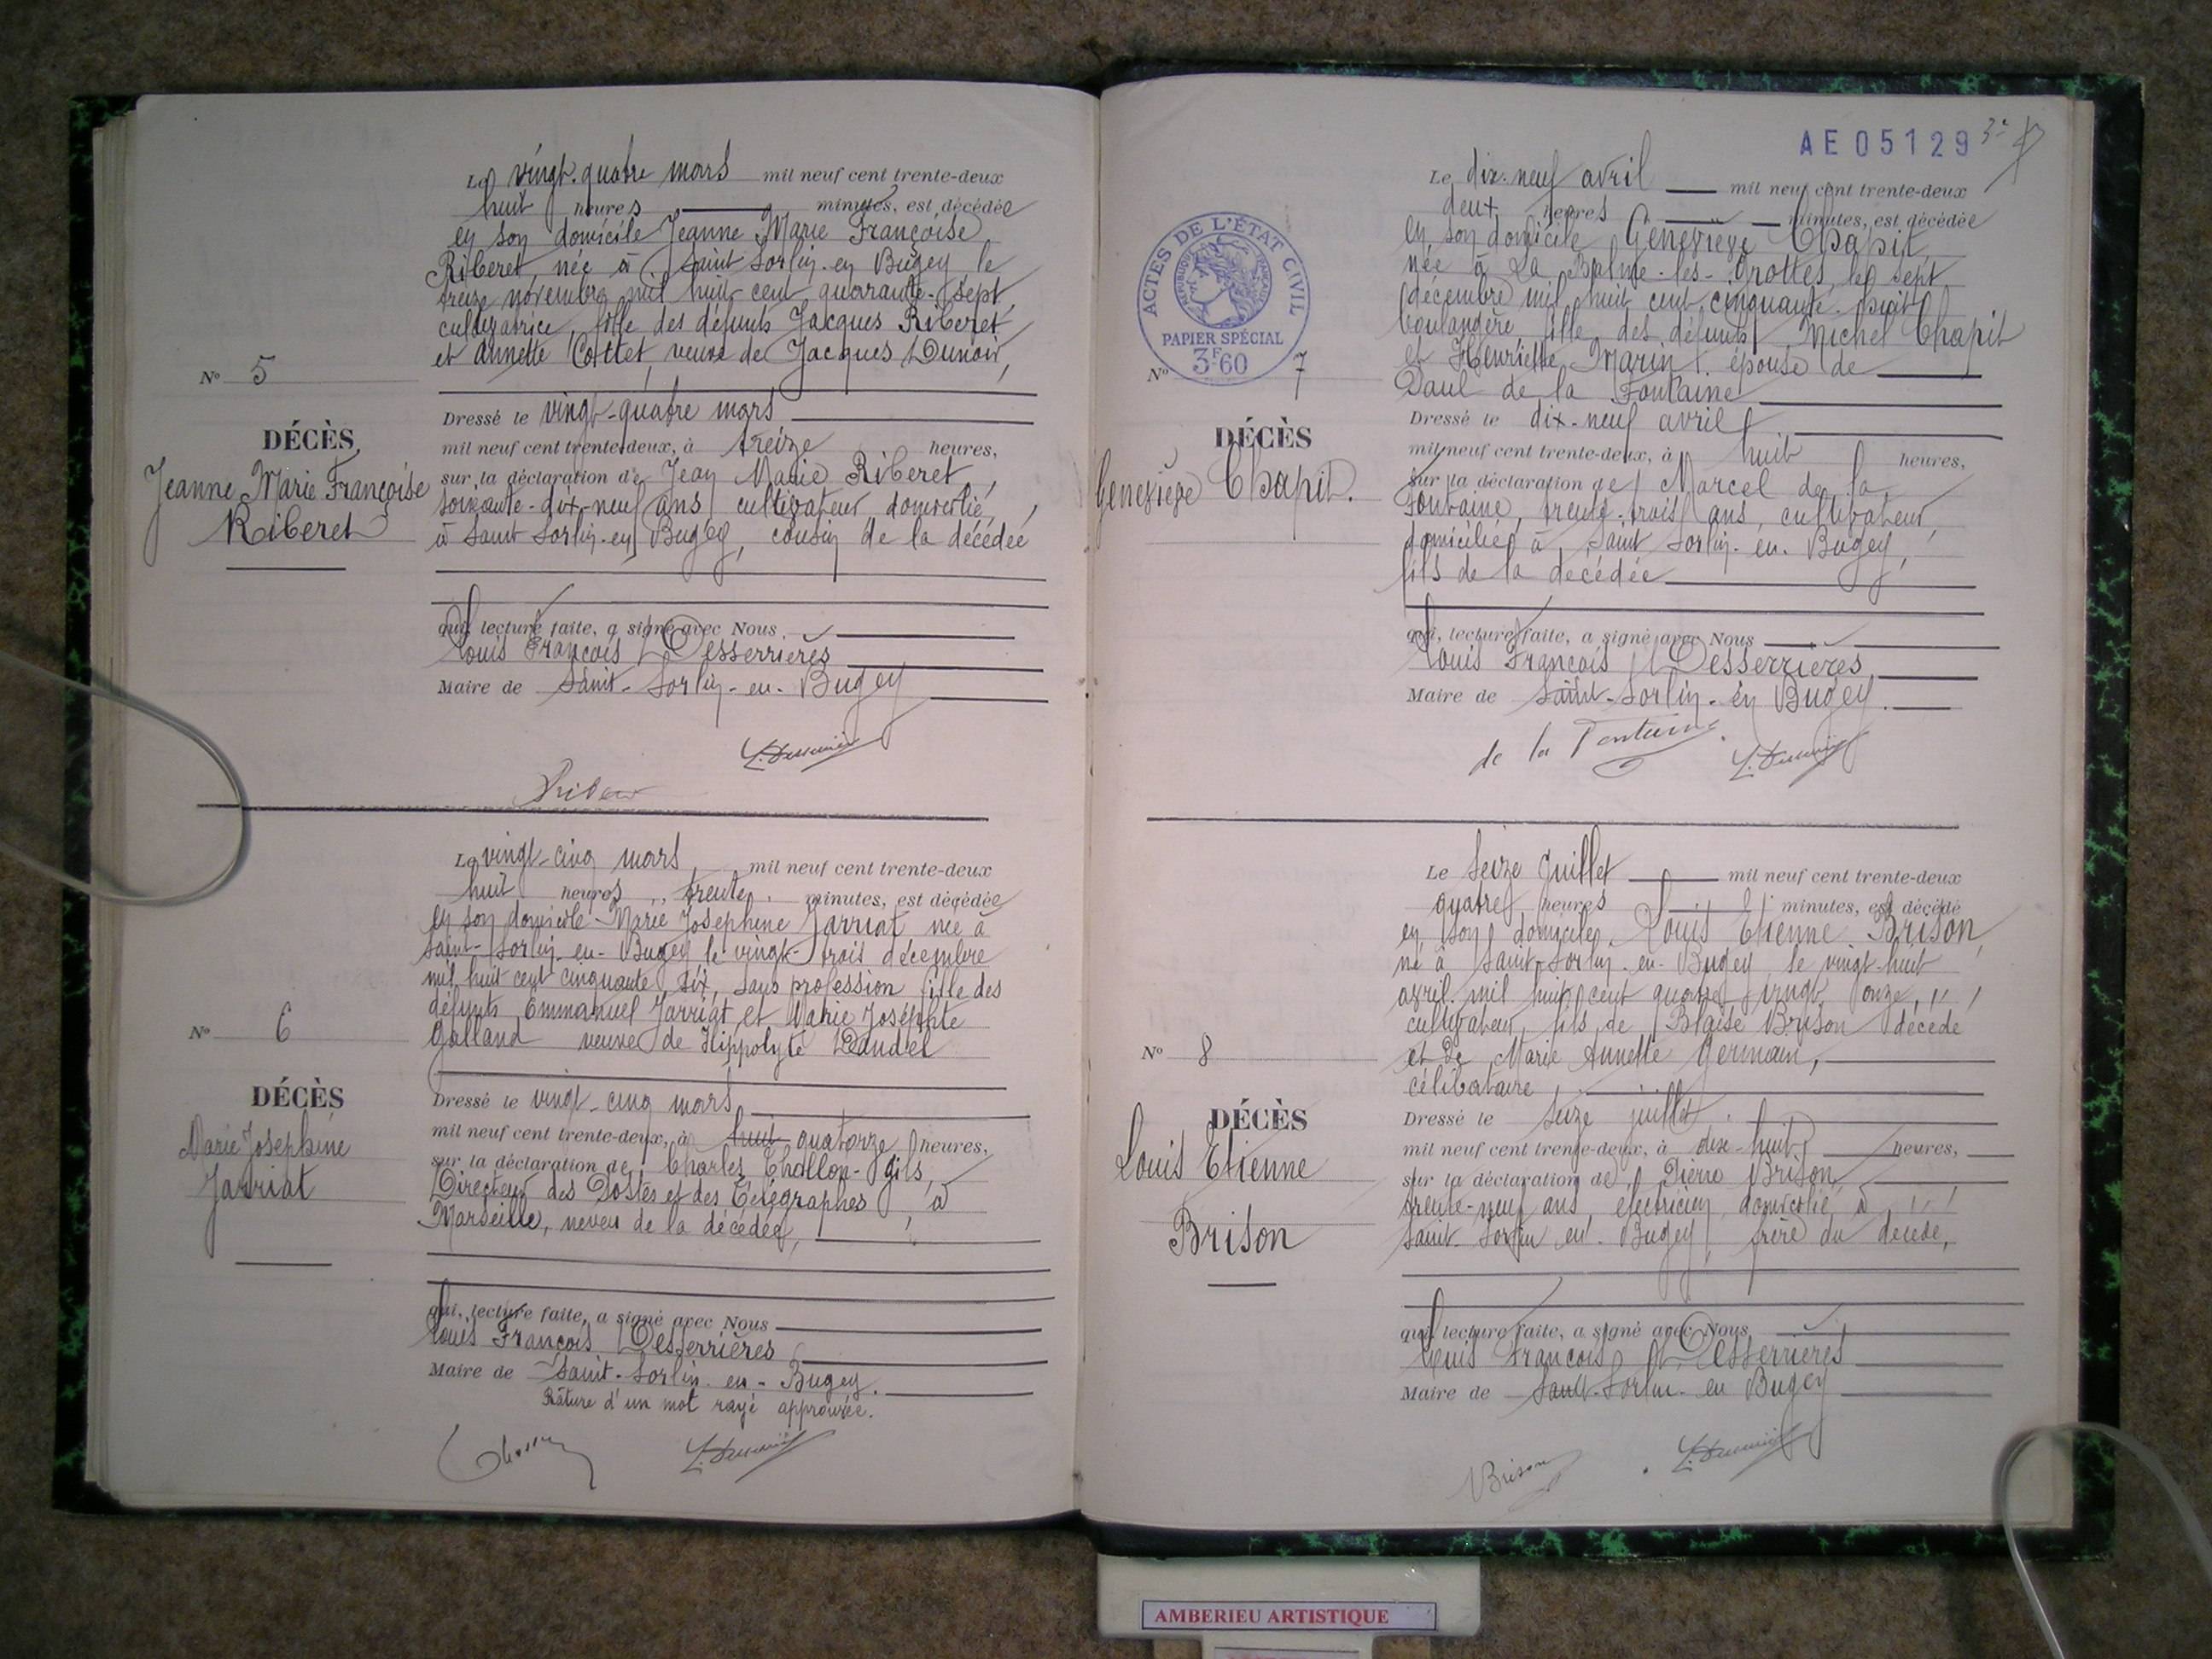 Le vingt-quatre mars mil neuf cent trente-deux
huit heures minutes, est décédée
en son domicile Jeanne Marie Françoise
Riberet, née à Saint Sorlin-en Bugey le
treize novembre mil huit cent quarante-sept,
cultivatrice, fille des défunts Jacques Riberet
et Annette Cottet, veuve de Jacques Dunoir,
N° 5
DÉCÈS
Jeanne Marie Françoise
Riberet
Dressé le vingt-quatre mars
mil neuf cent trente-deux, à treize heures,
sur la déclaration de Jean Marie Riberet,
soixante-dix-neuf ans cultivateur domicilié,
à Saint Sorlin-en Bugey, cousin de la décédée
qui, lecture faite, a signé avec Nous
Louis François Desserrières
Maire de Saint-Sorlin-en-Bugey
L. Desserrières
Riberet
Le vingt-cinq mars mil neuf cent trente-deux
huit heures trente minutes, est décédée
en son domicile Marie Josephine Jarriat née à
Saint-Sorlin-en-Bugey le vingt-trois décembre
mil huit cent cinquante six, sans profession fille des
défunts Emmanuel Jarriat et Marie Joséphte
Galland veuve de Hippolyte Daudel
N° 6
DÉCÈS
Marie Josephine
Jarriat
Dressé le vingt-cinq mars
mil neuf cent trente-deux, à huit quatorze heures,
sur la déclaration de Charles Thollon-fils,
Directeur des Postes et des Télégraphes, à
Marseille, neveu de la décédée,
qui, lecture faite, a signé avec Nous
Louis François Desserrières
Maire de Saint-Sorlin-en-Bugey.
Râture d'un mot rayé approuvée.
L. Desserrières
AE 05129
ACTES DE L'ÉTAT CIVIL
RÉPUBLIQUE FRANÇAISE
PAPIER SPÉCIAL
3F60
Le dix-neuf avril mil neuf cent trente-deux
deux heures minutes, est décédée
en son domicile Geneviève Chapit,
née à La Balme-les-Grottes, le sept
décembre mil huit cent cinquante-huit
boulangère fille des défunts Michel Chapit
et Henriette Marin, épouse de
Paul de la Fontaine
N° 7
DÉCÈS
Geneviève Chapit.
Dressé le dix-neuf avril
mil neuf cent trente-deux, à huit heures,
sur la déclaration de Marcel de la
Fontaine, trente-trois ans, cultivateur,
domicilié à Saint Sorlin-en-Bugey,
fils de la décédée
qui, lecture faite, a signé avec Nous
Louis François Desserrières
Maire de Saint-Sorlin-en Bugey.
de la Fontaine.
L. Desserrières
Le seize juillet mil neuf cent trente-deux
quatre heures minutes, est décédé
en son domicile, Louis Etienne Brison,
né à Saint-Sorlin-en-Bugey le vingt-huit
avril mil huit cent quatre vingt onze,
cultivateur, fils de Blaise Brison décédé
et de Marie Annette Germain,
célibataire,
N° 8
DÉCÈS
Louis Etienne
Brison
Dressé le seize juillet
mil neuf cent trente-deux, à dix-huit heures,
sur la déclaration de Pierre Brison,
trente-neuf ans, électricien domicilié à
Saint-Sorlin en Bugey frère du décédé,
qui, lecture faite, a signé avec Nous
Louis François Desserrières
Maire de Saint-Sorlin-en Bugey
Brison
L. Desserrières
AMBERIEU ARTISTIQUE